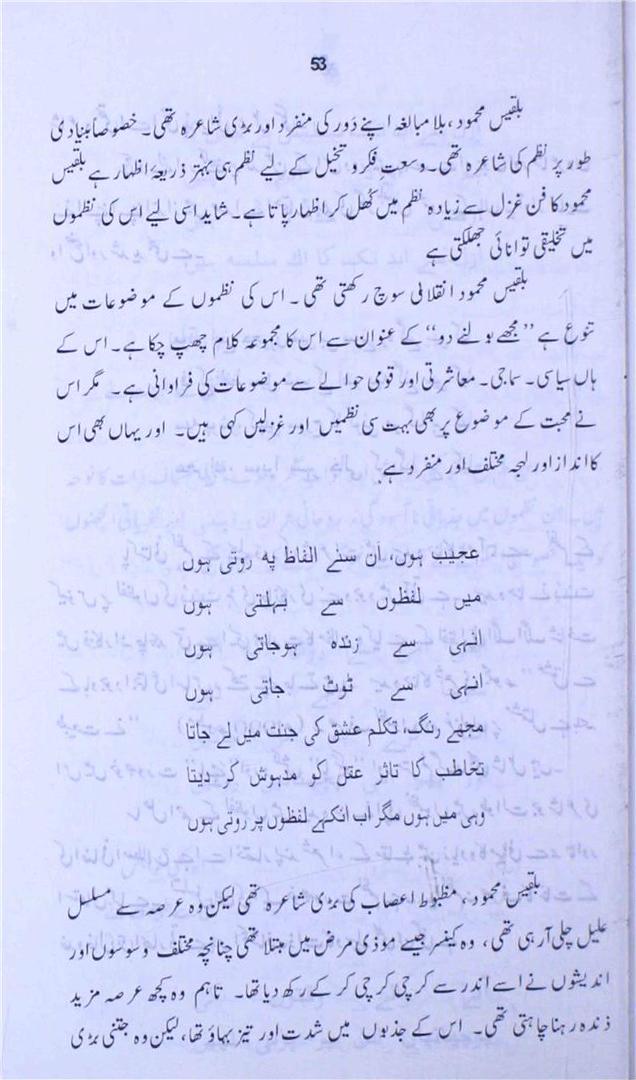 53
بلقیس محمود، بلا مبالغہ اپنے دَور کی منفرد اور بڑی شاعرہ تھی۔ خصوصاً بنیادی
طور پر نظم کی شاعرہ تھی۔ وسعتِ فکر و تخیل کے لیے نظم ہی بہتر ذریعۂ اظہار ہے بلقیس
محمود کا فن غزل سے زیادہ نظم میں کُھل کر اظہار پاتا ہے۔ شاید اسی لیے اس کی نظموں
میں تخلیقی توانائی جھلکتی ہے
بلقیس محمود انقلابی سوچ رکھتی تھی۔ اس کی نظموں کے موضوعات میں
تنوع ہے ”مجھے بولنے دو“ کے عنوان سے اس کا مجموعہ کلام چھپ چکا ہے۔ اس کے
ہاں سیاسی۔ سماجی۔ معاشرتی اور قومی حوالے سے موضوعات کی فراوانی ہے۔ مگر اس
نے محبت کے موضوع پر بھی بہت سی نظمیں اور غزلیں کہی ہیں۔ اور یہاں بھی اس
کا انداز اور لہجہ مختلف اور منفرد ہے۔
عجیب ہوں، اَن سنے الفاظ پہ روتی ہوں
میں لفظوں سے بہلتی ہوں
انہی سے زندہ ہوجاتی ہوں
انہی سے ٹوٹ جاتی ہوں
مجھے رنگِ تکلم عشق کی جنت میں لے جاتا
تخاطب کا تاثر عقل کو مدہوش کر دیتا
وہی میں ہوں مگر اب انکہے لفظوں پر روتی ہوں
بلقیس محمود، مظبوط اعصاب کی بڑی شاعرہ تھی لیکن وہ عرصہ سے مسلسل
علیل چلی آ رہی تھی، وہ کینسر جیسے موذی مرض میں مبتلا تھی چنانچہ مختلف وسوسوں اور
اندیشوں نے اسے اندر سے کرچی کرچی کر کے رکھ دیا تھا۔ تاہم وہ کچھ عرصہ مزید
زندہ رہنا چاہتی تھی۔ اس کے جذبوں میں شدت اور تیز بہاؤ تھا، لیکن وہ جتنی بڑی